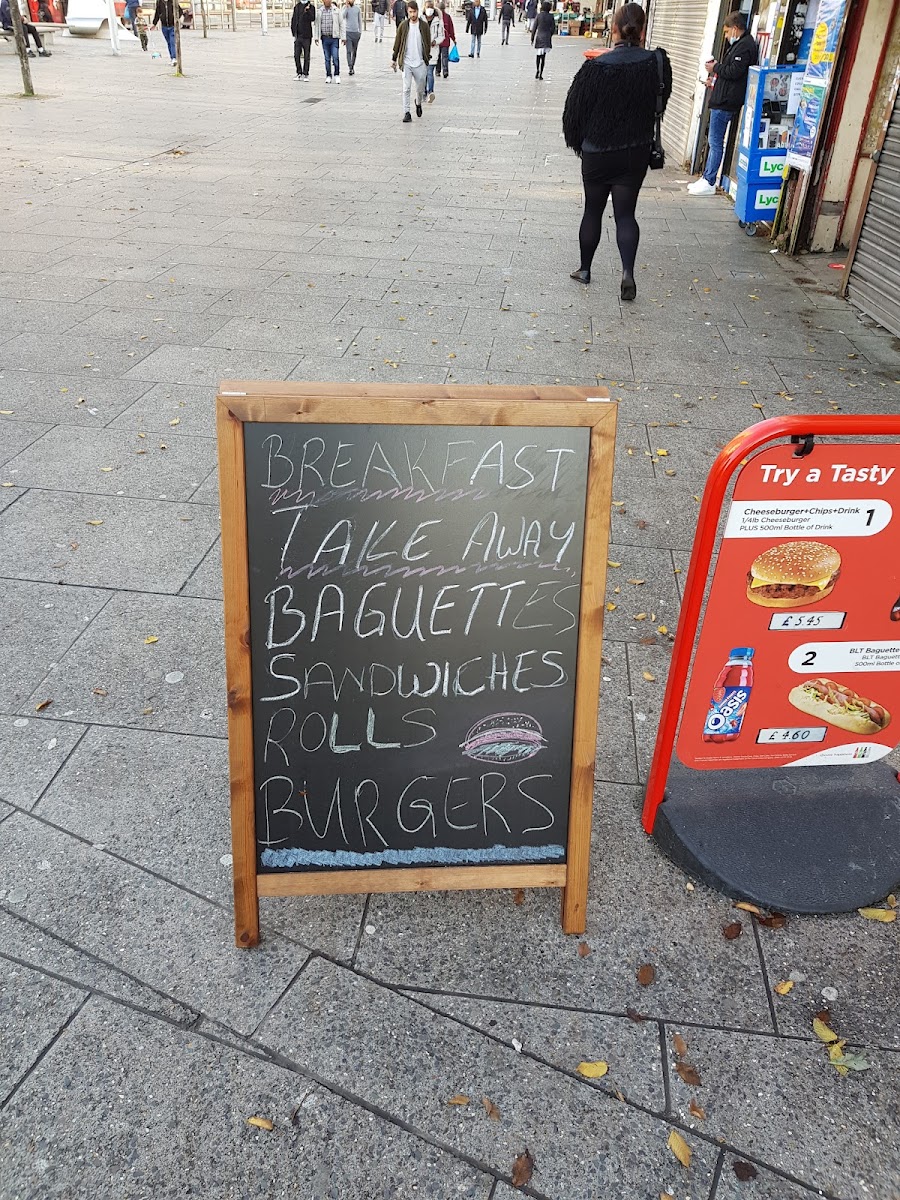 BREAKFAST
TAKE AWAY
BAGUETTES
SANDWICHES
ROLLS
BURGERS
Try a Tasty
Cheeseburger+Chips+Drink 1
1/4lb Cheeseburger
PLUS 500ml Bottle of Drink
£5.45
2 BLT Baguette
BLT Baguett
500ml Bottle o
Oasis
£4.60
Lyc
Lyc